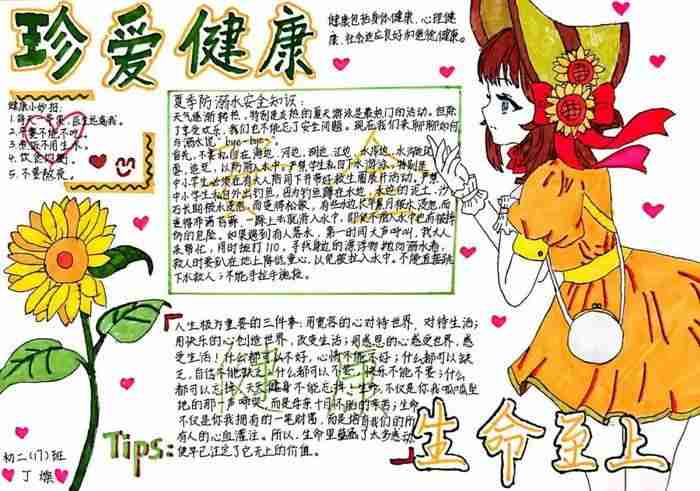 珍爱健康
健康包括身体健康、心理健
康、社会适应良好和道德健康。
健康小妙招:
1.每天一苹果,医生远离我。
2.早餐不能不吃。
3.也饭不用生水。
4.饮食均衡。
5.不要熬夜。
夏季防溺水安全知识:
天气逐渐转热,特别是炎热的夏天游泳是最热门的活动。但除
了享受欢乐,我们也不能忘了安全问题。现在我们来聊聊如何
与溺水说:"bye-bye"
首先,不要私自在海边、河边、湖边、江边、水库边、水沟边玩
耍、追赶,以防溺入水中。严禁学生私自下水游泳。特别是
中小学生必须在有大人陪同下并带好救生圈展开活动。严禁
中小学生私自外出钓鱼,因为钓鱼蹲在水边,水边的泥土、沙
石长期被水浸泡,而变得松散,有些水边长年累月被水浸泡,而
長得薄滑苔藓,一踩上去就滑入水中,即使不滑入水中也有被摔
伤的危险。如果遇到有人落水,第一时间大声呼叫,找大人
来帮忙,同时拨打110。寻找身边的漂浮物抛向溺水者,
救人时要趴在地上降低重心,以免被拉入水中。不能直接跳
下水救人;不能手拉手施救。
人生极为重要的三件事:用宽容的心对待世界,对待生活;
用快乐的心创造世界,改变生活;用感恩的心感受世界,感
受生活!什么都可以不好,心情不能不好;什么都可以缺
乏,自信不能缺乏;什么都可以不要,快乐不能不要;什么
都可以忘掉,天天健身不能忘掉!生命不仅是你我呱呱坠
地的那一声啼哭,而是母亲十月怀胎的辛苦;生命
不仅是你我拥有的一笔财富,而是培育我们的所
有人的心血灌注。所以,生命里蕴涵了太多感动,
使早已注定了它无上的价值。
Tips:
生命至上
初二(17)班
丁